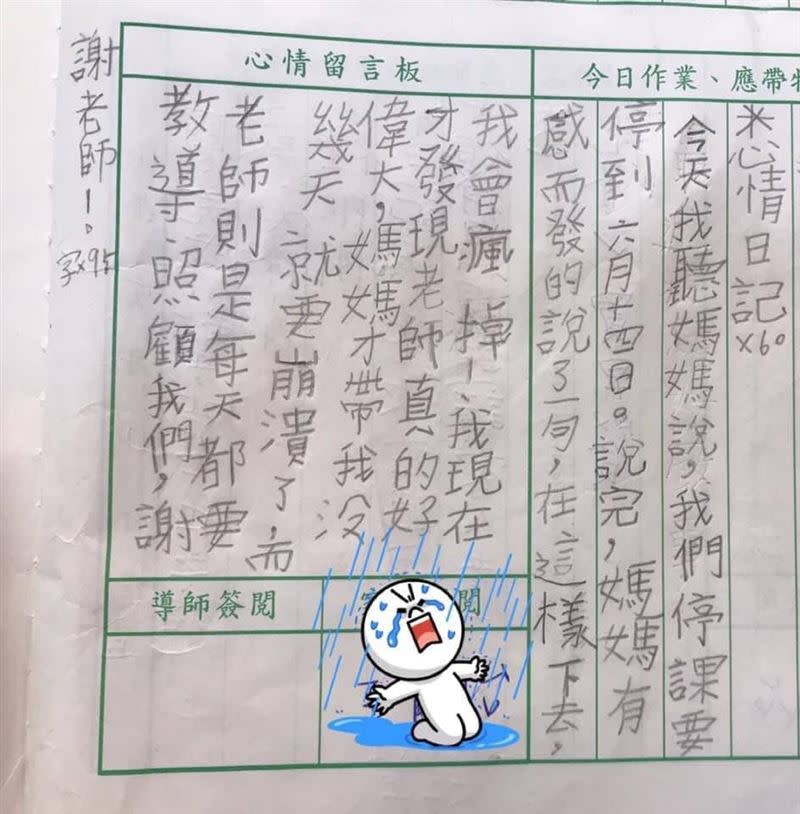 今日作業、應帶
心情日記
x60
今天我聽媽媽說，我們停課要
停到六月十四日。說完，媽媽有
感而發的說了一句，在這樣下去，
心情留言板
我會瘋掉！、我現在
才發現老師真的好
偉大，媽媽才帶我沒
幾天就要崩潰了，而
老師則是每天都要
教導、照顧我們，謝
謝老師！。
導師簽閱
閱